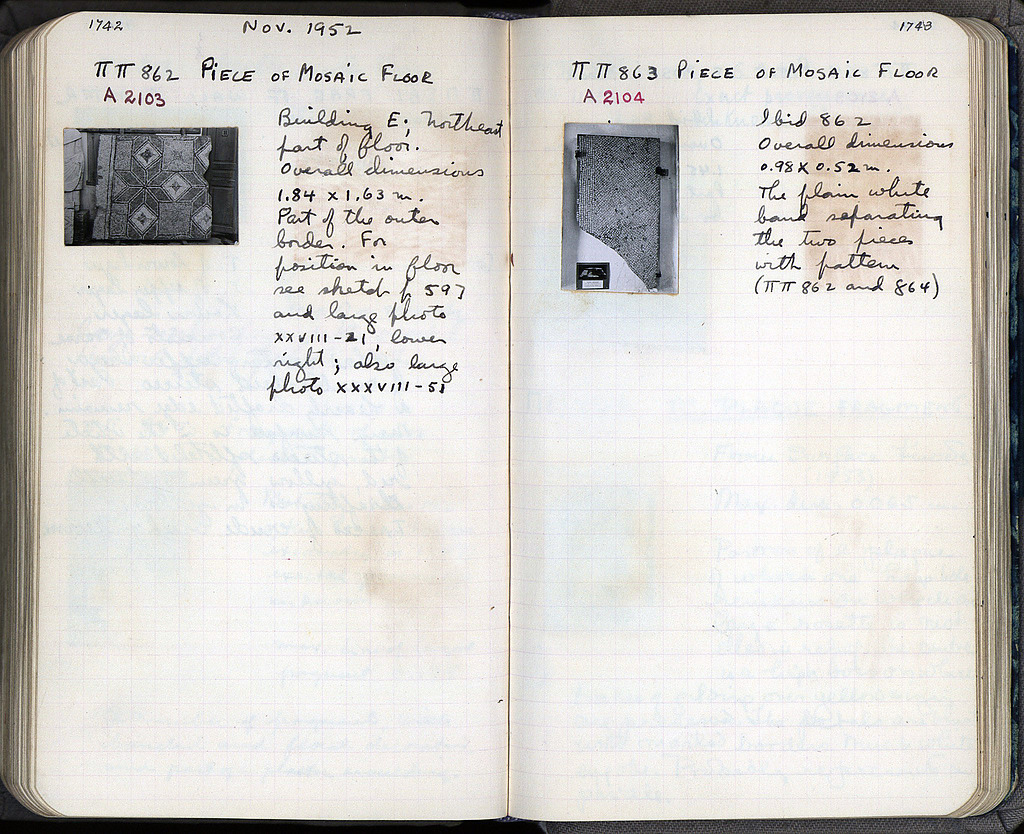 1742
Nov. 1952
ΠΠ 862 Piece of Mosaic Floor
A 2103
Building E; Northeast
part of floor.
Overall dimensions
1.84 x 1.63 m.
Part of the outer
border. For
position in floor
see sketch p 597
and large photo
XXVIII-21, lower
right; also large
photo XXXVIII-51
1743
ΠΠ 863 Piece of Mosaic Floor
A 2104
Ibid 862
Overall dimensions
0.98 x 0.52 m.
The plain white
band separating
the two pieces
with pattern
(ΠΠ 862 and 864)